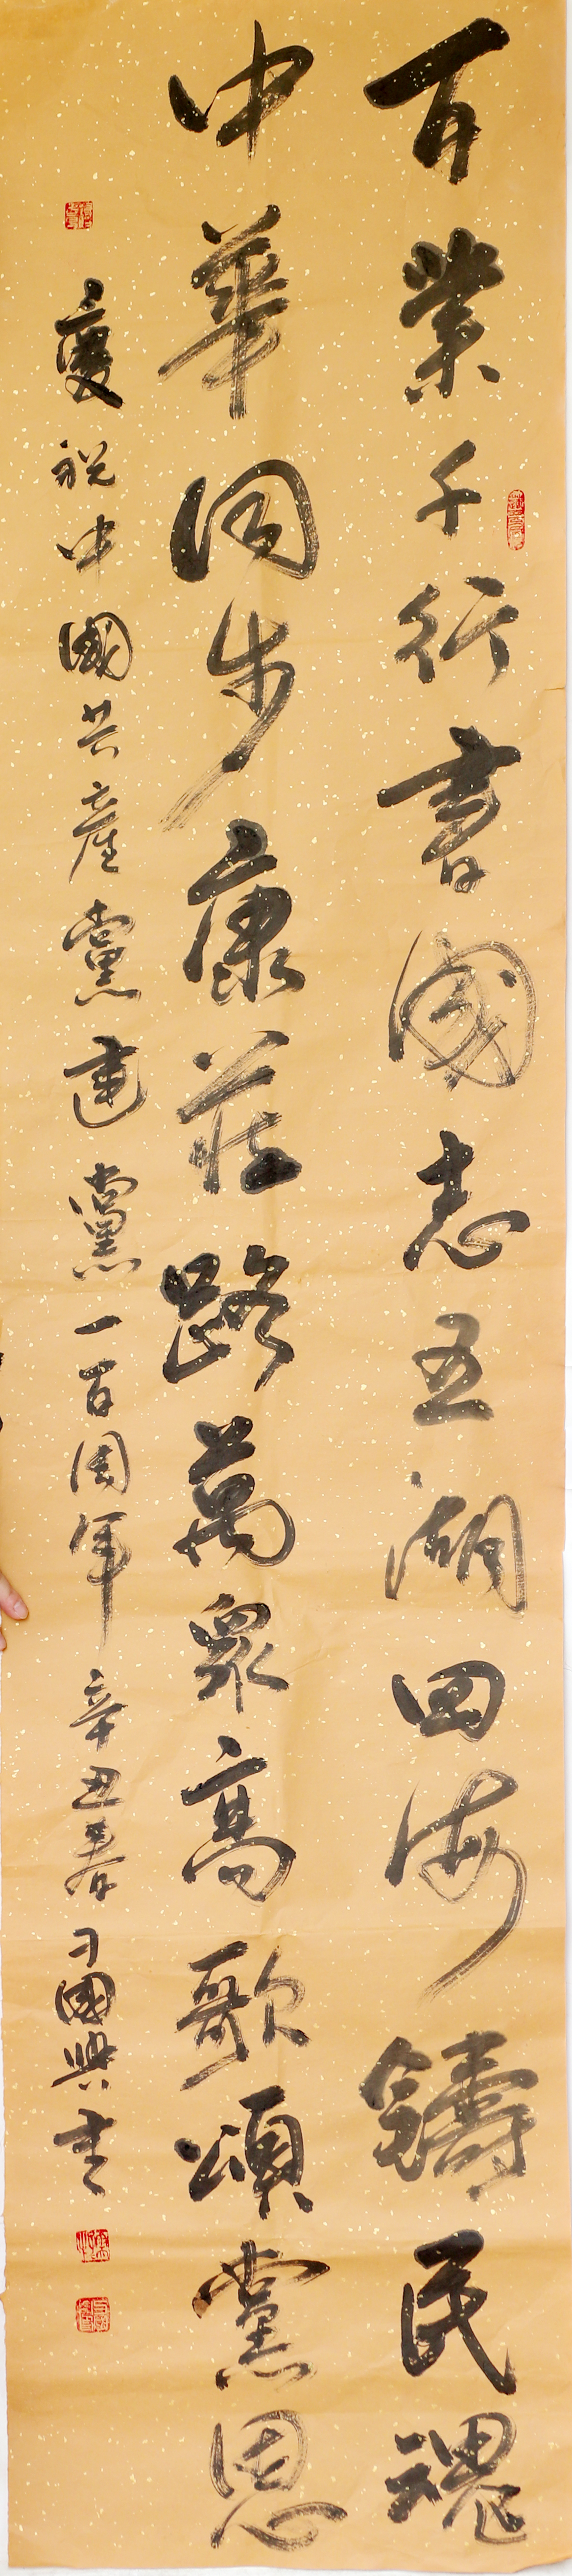 百業千行書國志五湖四海鑄民魂
中華同步康莊路萬眾高歌頌黨恩
慶祝中國共產黨建黨一百周年 辛丑春 刁國興書